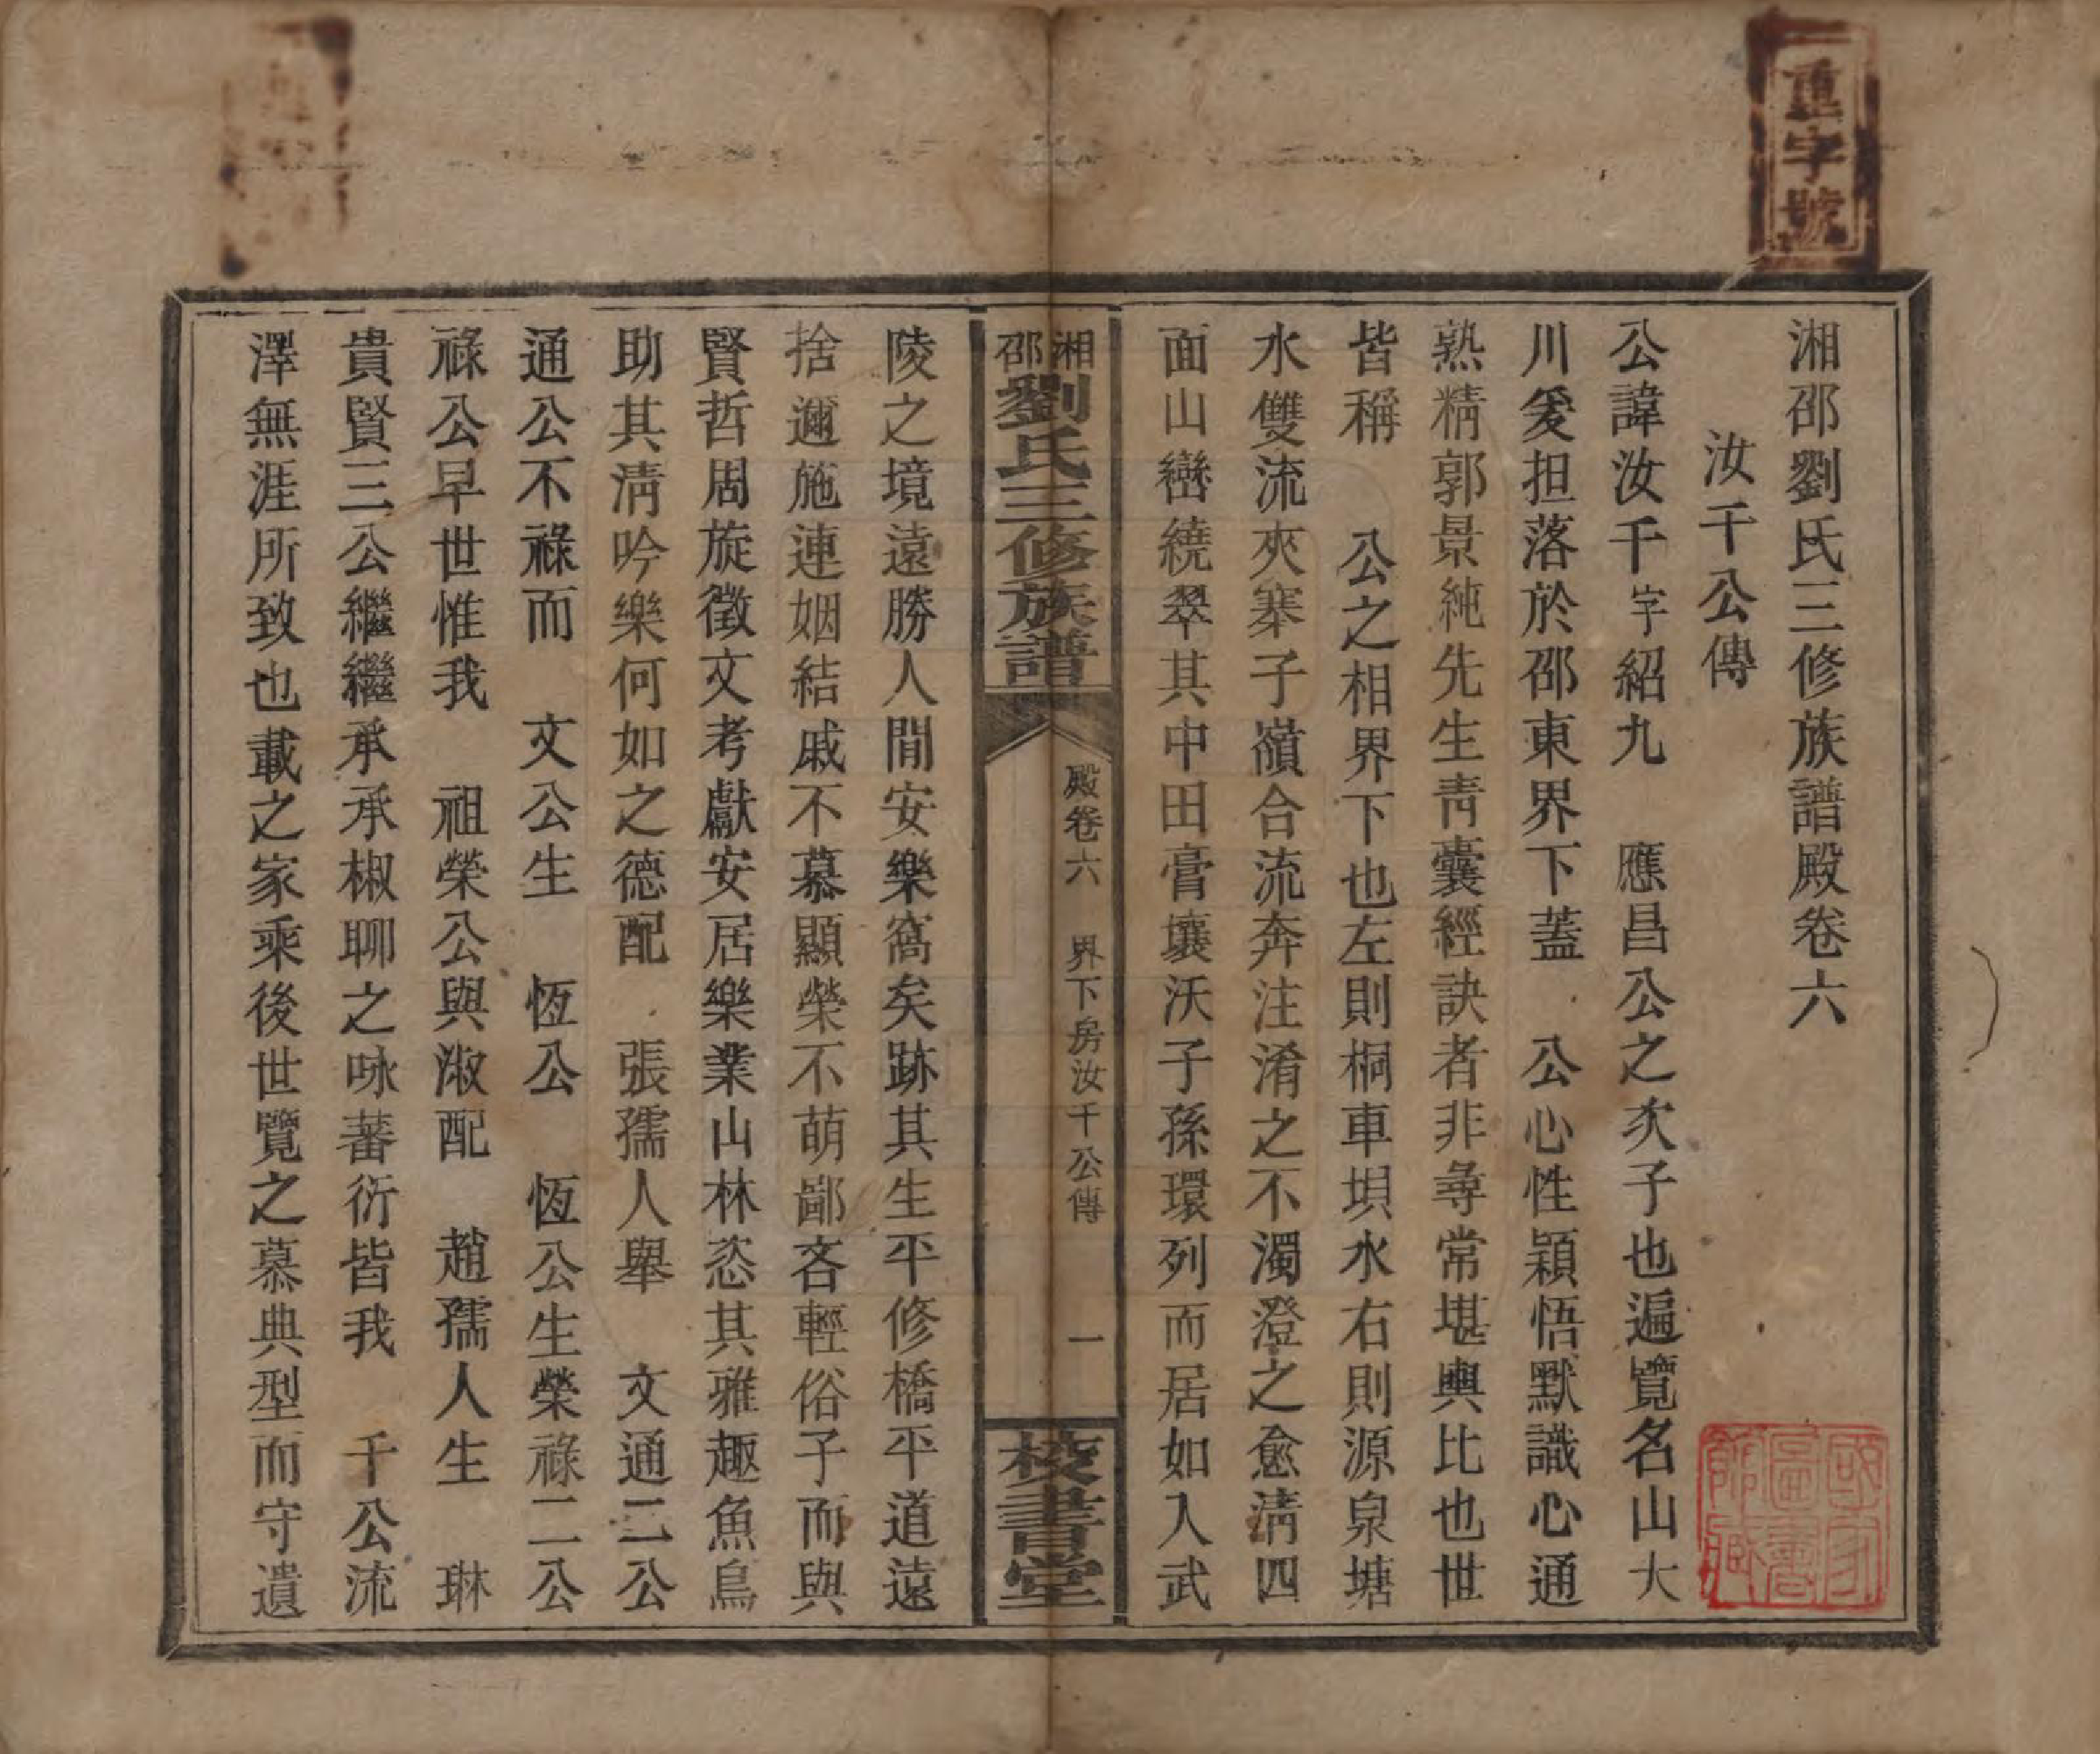 重字號
湘邵劉氏三修族譜殿卷六
汝千公傳
公諱汝千字紹九　應昌公之次子也遍覽名山大
川爰担落於邵東界下蓋　公心性穎悟默識心通
熟精郭景純先生靑囊經訣者非尋常堪輿比也世
皆稱　公之相界下也左則桐車垻水右則源泉塘
水雙流夾寨子嶺合流奔注淆之不濁澄之愈淸四
面山巒繞翠其中田膏壤沃子孫環列而居如入武
湘邵劉氏三修族譜　殿卷六　界下房汝千公傳　一　校書堂
陵之境遠勝人間安樂窩矣跡其生平修橋平道遠
捨邇施連姻結戚不慕顯榮不萌鄙吝輕俗子而與
賢哲周旋徵文考獻安居樂業山林恣其雅趣魚鳥
助其淸吟樂何如之德配　張孺人舉　文通二公
通公不祿而　文公生　恆公　恆公生榮祿二公
祿公早世惟我　祖榮公與淑配　趙孺人生　琳
貴賢三公繼繼承承椒聊之咏蕃衍皆我　千公流
澤無涯所致也載之家乘後世覽之慕典型而守遺
國家圖書館藏